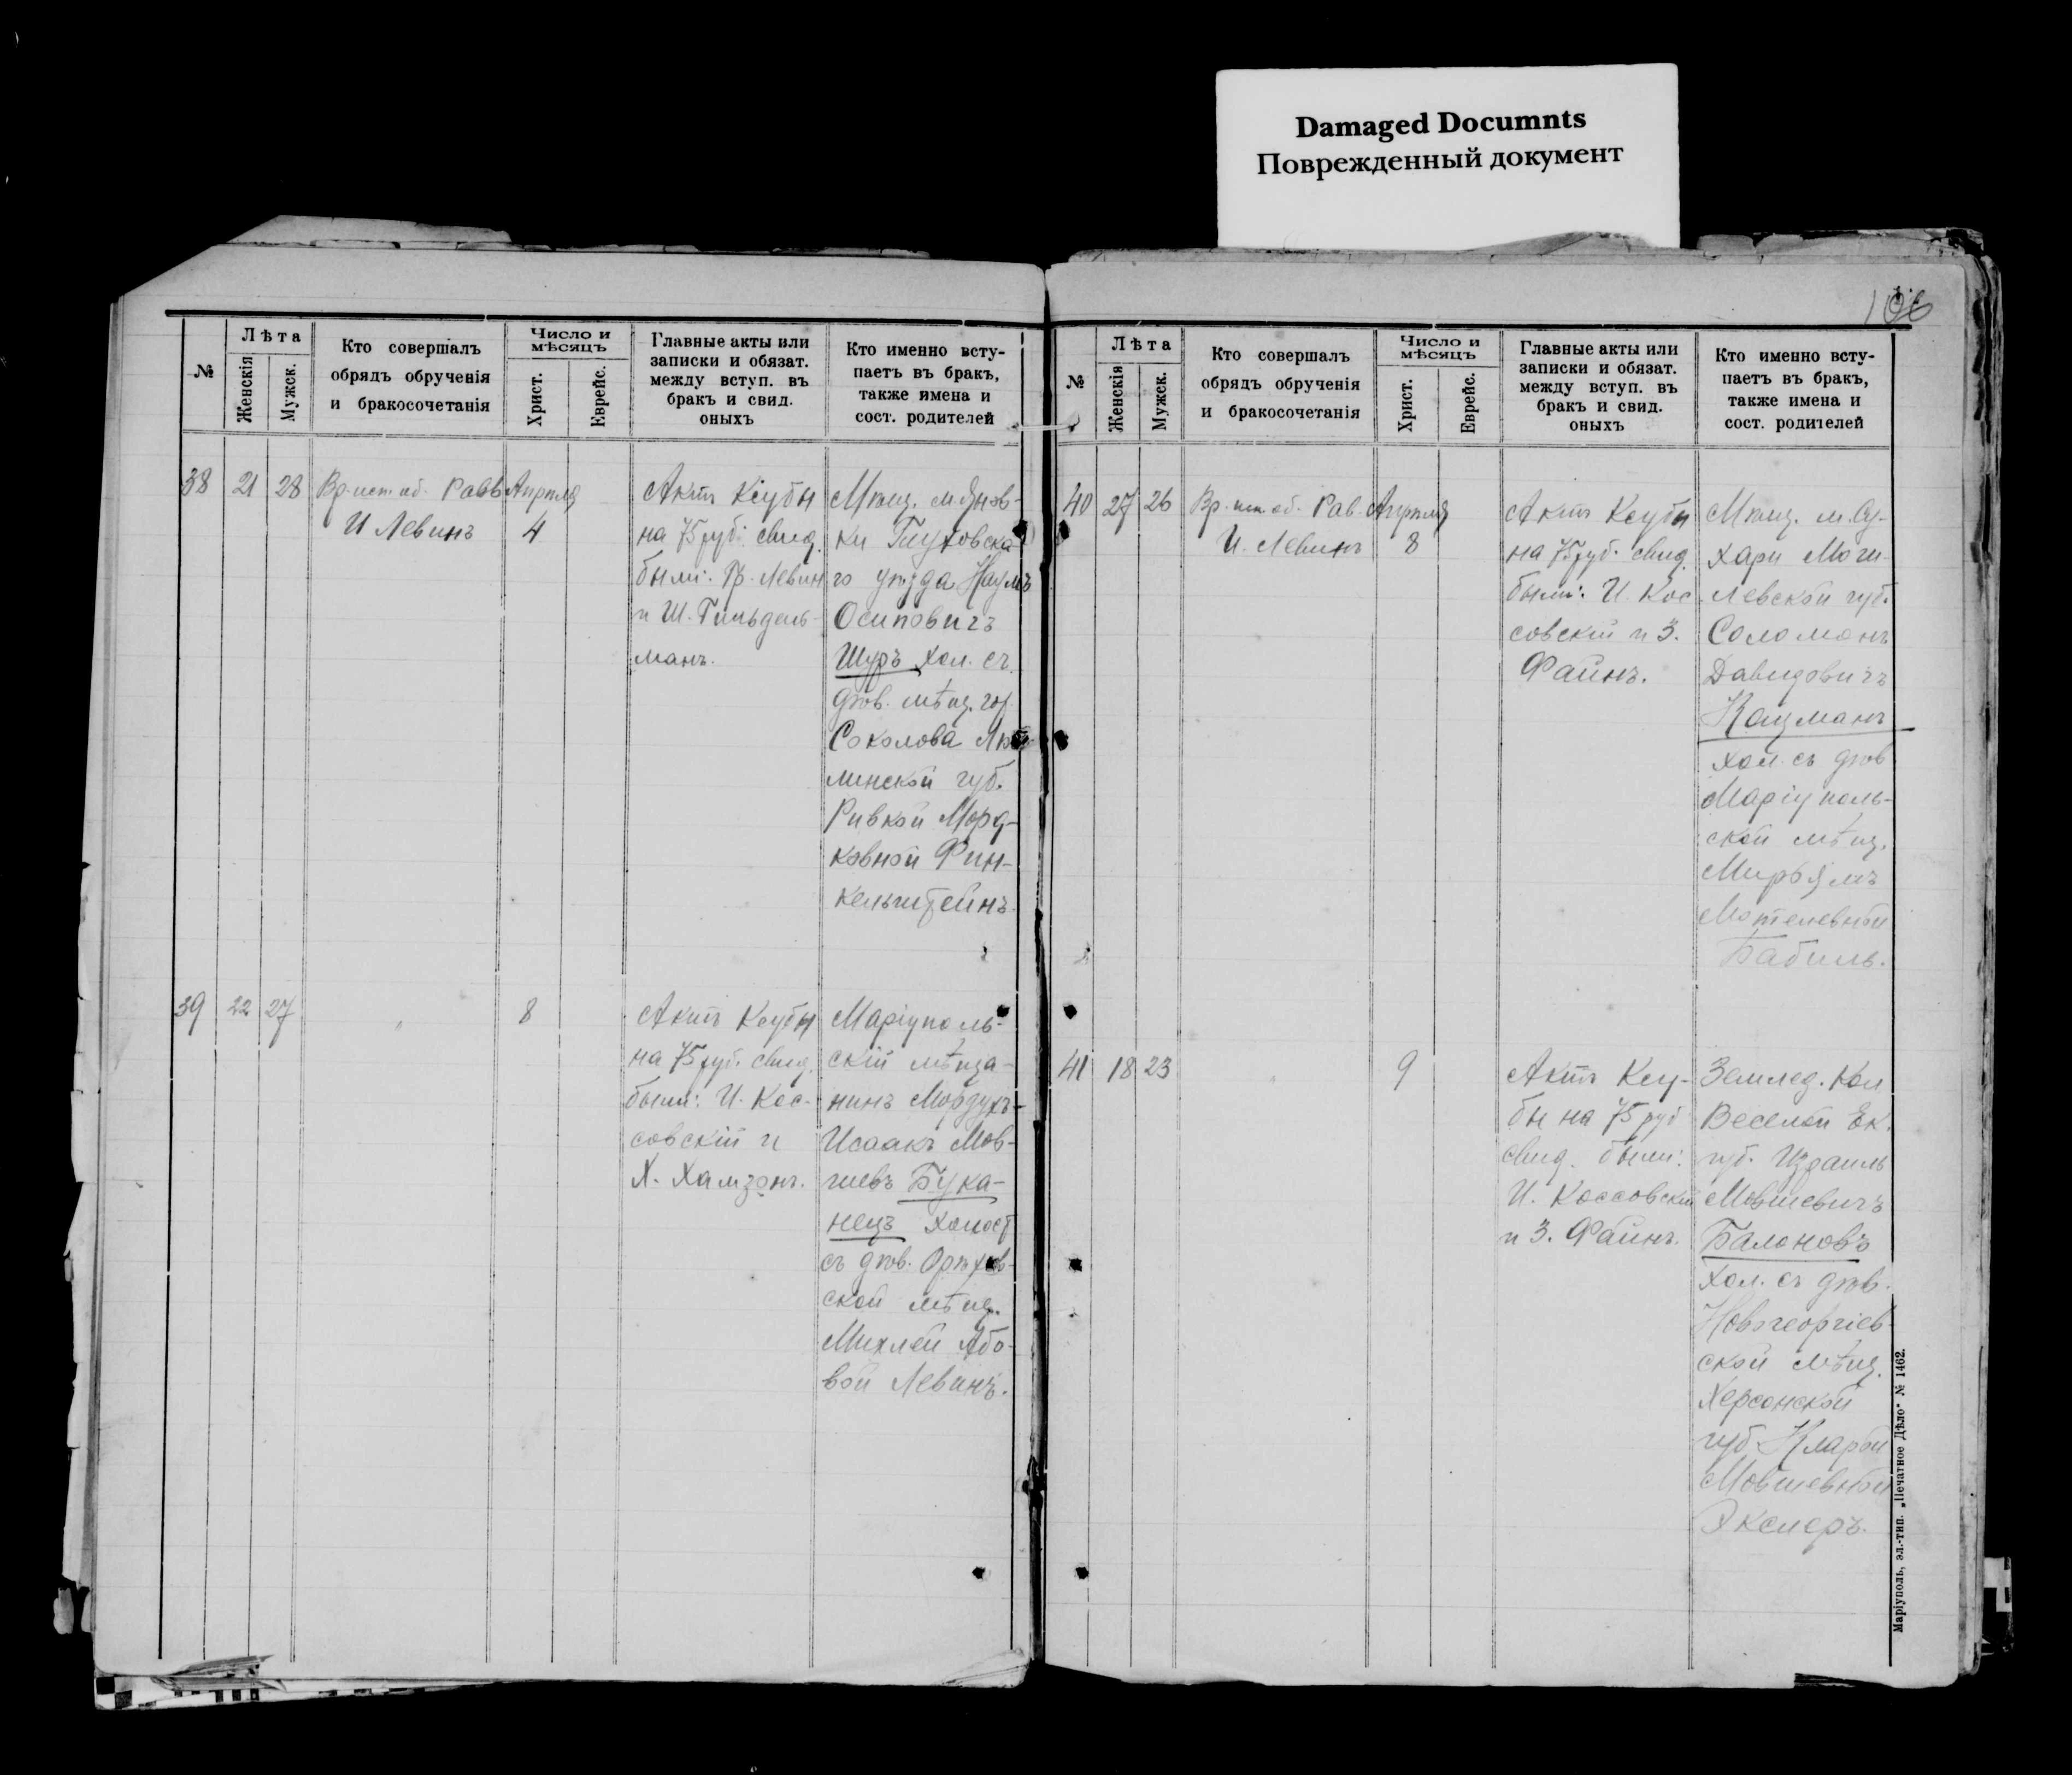 Damaged Documnts
Поврежденный документ
106
№
Лѣта
Женскія
Мужск.
Кто совершалъ
обрядъ обрученія
и бракосочетанія
Число и
мѣсяцъ
Христ.
Еврейс.
Главные акты или
записки и обязат.
между вступ. въ
бракъ и свид.
оныхъ
Кто именно всту-
паетъ въ бракъ,
также имена и
сост. родителей
38
21
28
Вр. исп. об. Равв
И Левинъ
Апрѣля
4
Актъ Ксубы
на 75 руб: свид.
были: Гр. Левин
и Ш. Гильдель-
манъ.
Мѣщ. м. Янов-
ки Глуховска-
го уѣзда Наумъ
Осиповичъ
Шуръ хол. съ
дѣв. мѣщ. гор.
Соколова Люб-
линской губ.
Ривкой Морд-
ковной Фин-
кельштейнъ
39
22
27
"
8
Актъ Ксубы
на 75 руб. свид.
были: И. Кос-
совскій и
Х. Хамзонъ.
Маріуполь-
скій мѣща-
нинъ Мордухъ-
Исаакъ Мов-
шевъ Бука-
нецъ холост
съ дѣв. Орѣхов-
ской мѣщ.
Михлей Або-
вой Левинъ.
№
Лѣта
Женскія
Мужск.
Кто совершалъ
обрядъ обрученія
и бракосочетанія
Число и
мѣсяцъ
Христ.
Еврейс.
Главные акты или
записки и обязат.
между вступ. въ
бракъ и свид.
оныхъ
Кто именно всту-
паетъ въ бракъ,
также имена и
сост. родителей
40
27
26
Вр. исп. об. Рав.
И. Левинъ
Апрѣля
8
Актъ Ксубы
на 75 руб. свид.
были: И. Кос
совскій и З.
Файнъ.
Мѣщ. м. Су-
хари Моги-
левской губ.
Соломонъ
Давидовичъ
Кацманъ
хол. съ дѣв
Маріуполь-
ской мѣщ.
Мирьямъ
Мотелевной
Бабиль.
41
18
23
9
Актъ Ксу-
бы на 75 руб
свид. были:
И. Коссовскій
и З. Файнъ.
Землед. кол
Веселой Ек.
губ. Израиль
Мовшевичъ
Балоновъ
хол. съ дѣв.
Новогеоргіев-
ской мѣщ.
Херсонской
губ. Кларой
Мовшевной
Экслеръ.
Маріуполь, эл.-тип. „Печатное Дѣло" № 1462.